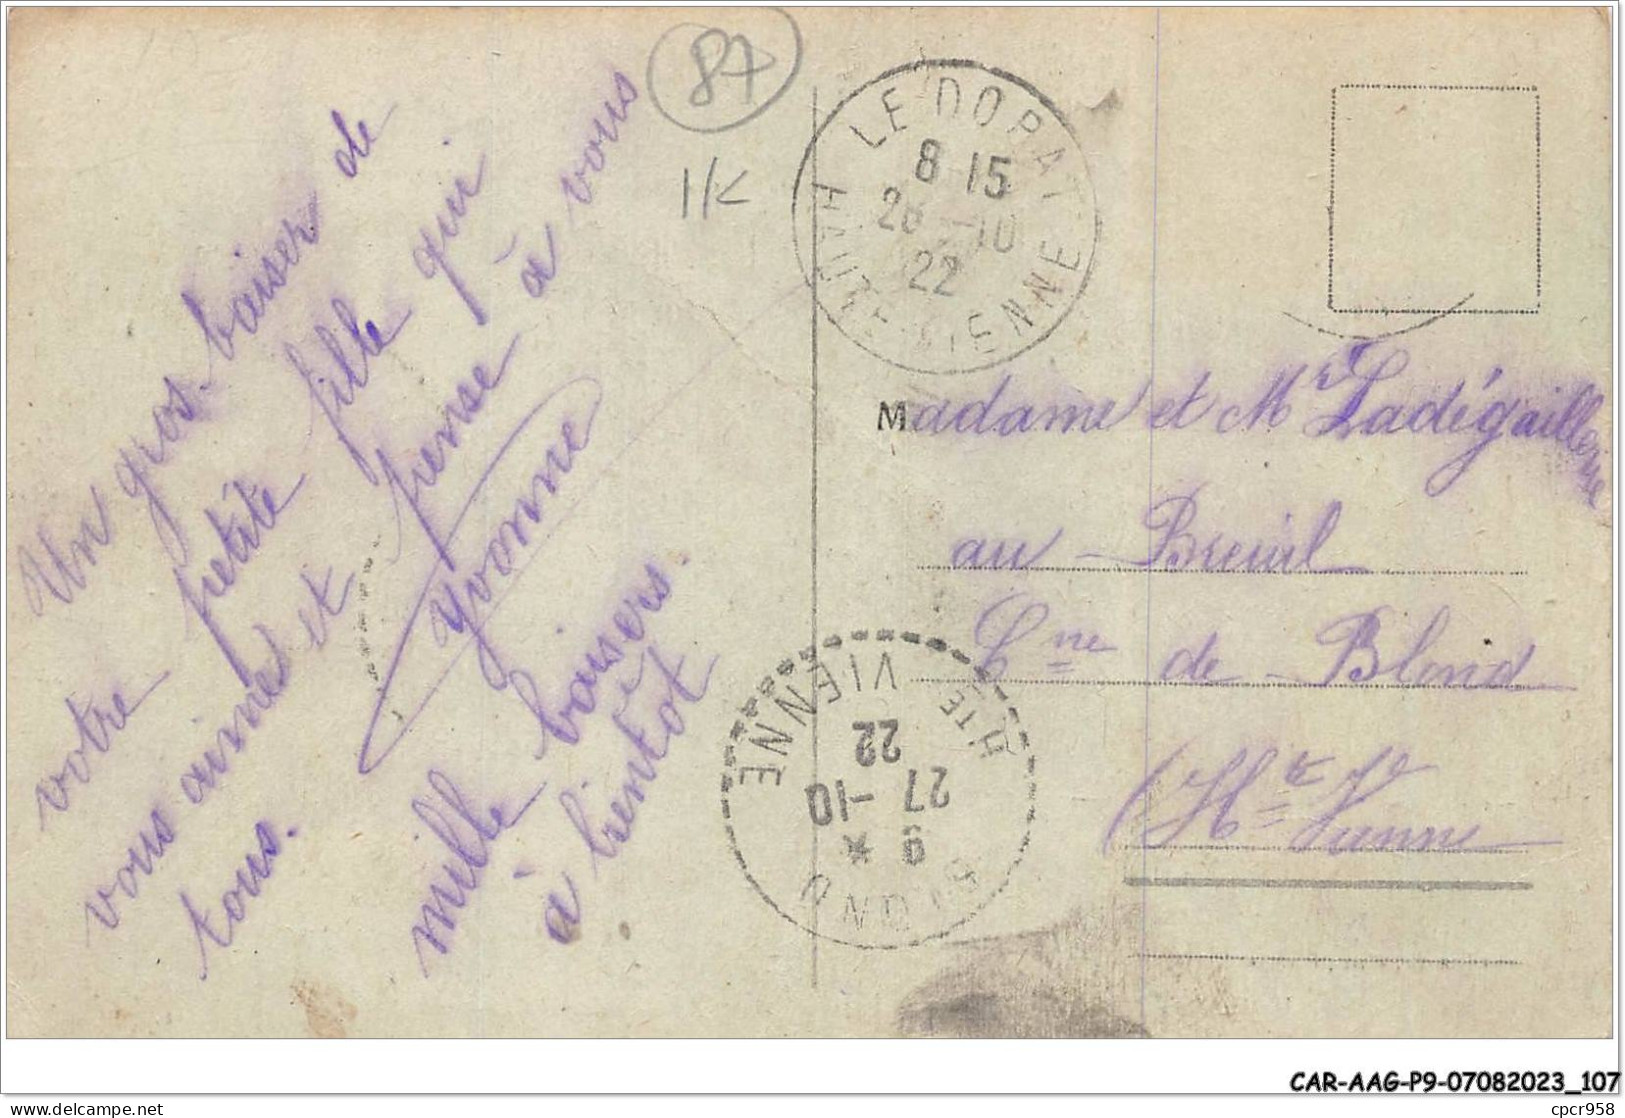 Un gros baiser de
votre petite fille qui
vous aime et pense à vous
tous.
Yvonne
mille baisers.
à bientôt
87
1K
LE DORAT
8 15
26 -10
22
HAUTE-VIENNE
Madame et Mr Ladégaillerie
au Breuil
Cne de Blond
(Hte Vienne
BLOND
9 *
27 -10
22
HTE VIENNE
CAR-AAG-P9-07082023_107
delcampe.net
cpcr958